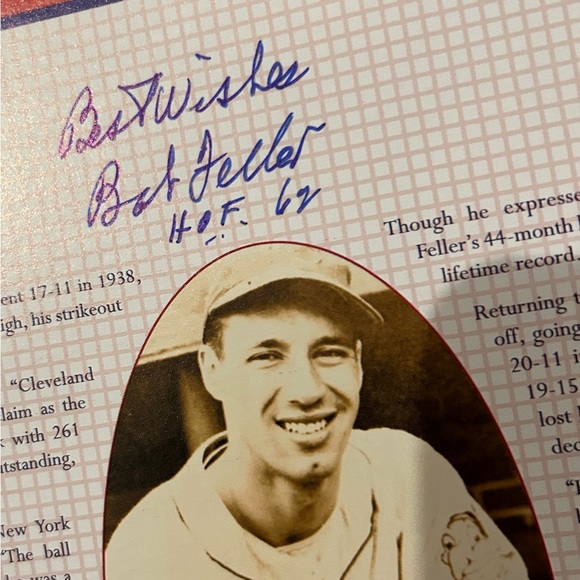 Best Wishes
Bob Feller
H.O.F. 62
ent 17-11 in 1938,
igh, his strikeout
"Cleveland
laim as the
with 261
tstanding,
New York
"The ball
was a
Though he expresse
Feller's 44-month
lifetime record.
Returning t
off, going
20-11 i
19-15
lost
dec